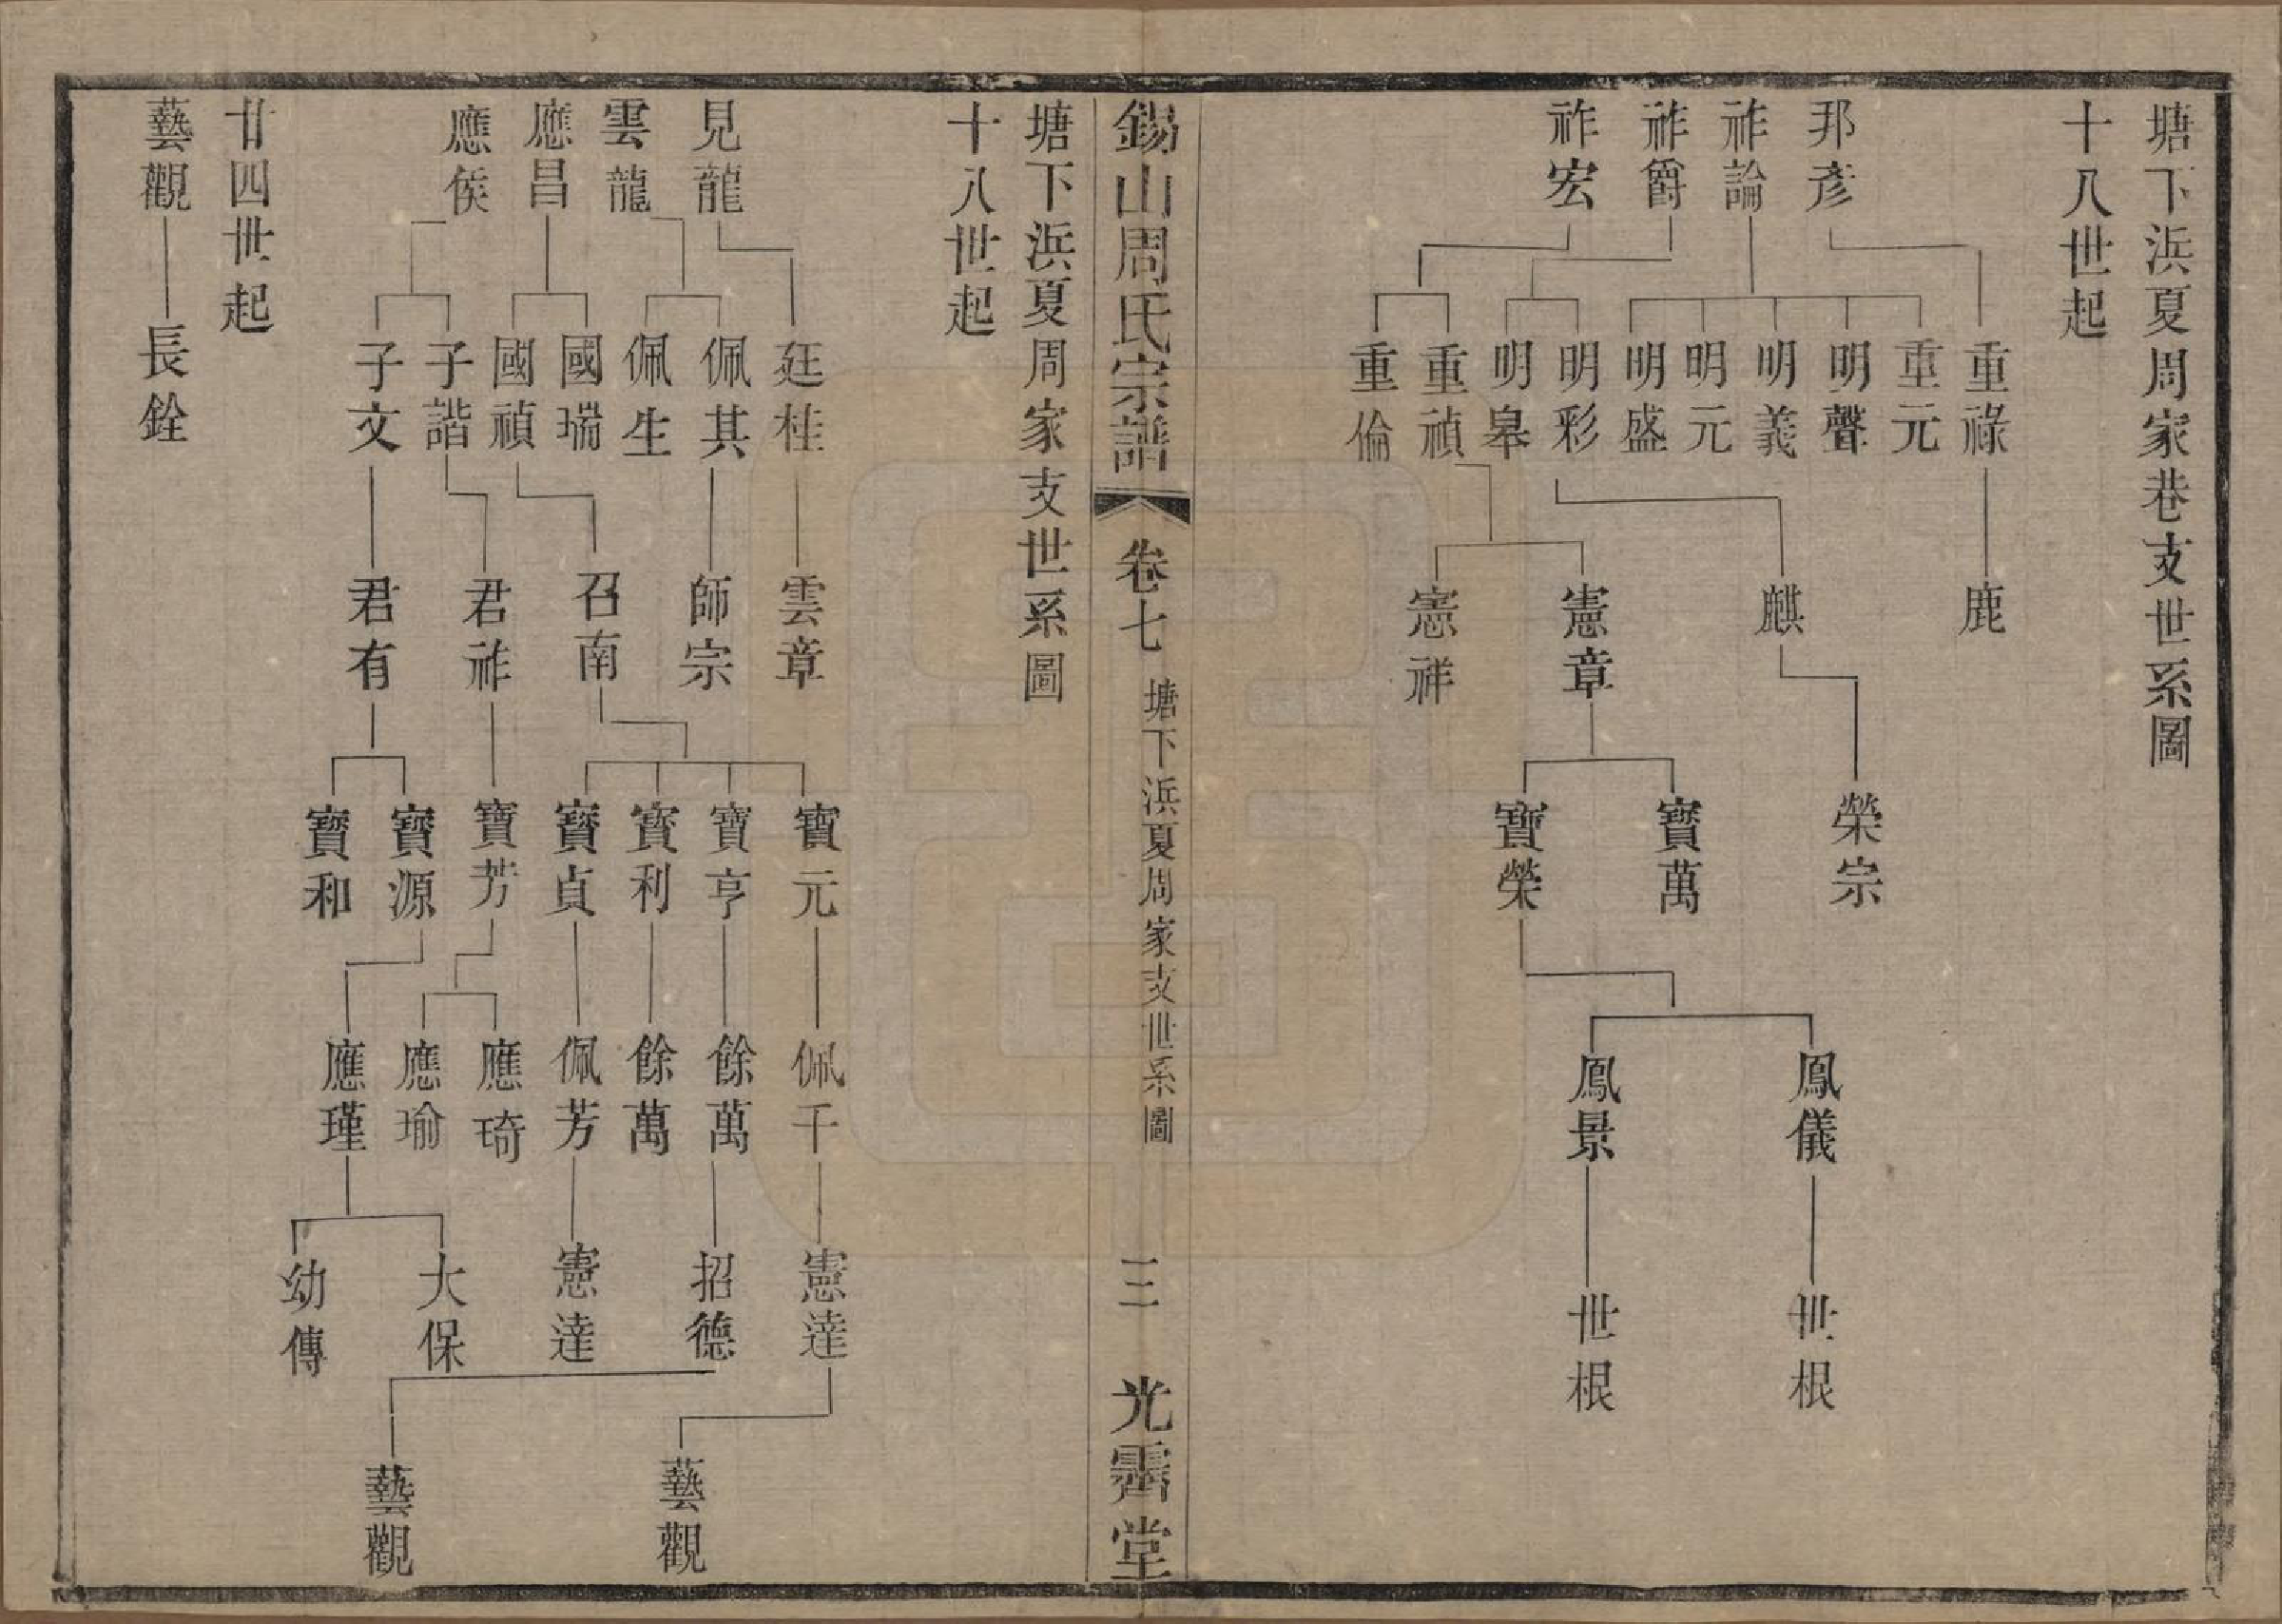 塘下浜夏周家巷支世系圖
十八世起
邦彥
祚論
祚爵
祚宏
重祿
重元
明聲
明義
明元
明盛
明彩
明皋
重禎
重倫
鹿
麒
憲章
憲祥
榮宗
寶萬
寶榮
鳳儀
鳳景
世根
世根
錫山周氏宗譜
卷七
塘下浜夏周家支世系圖
三
光霽堂
塘下浜夏周家支世系圖
十八世起
見龍
雲龍
應昌
應侯
廷桂
佩其
佩生
國瑞
國禎
子諧
子文
雲章
師宗
召南
君祚
君有
寶元
寶亨
寶利
寶貞
寶芳
寶源
寶和
佩千
餘萬
餘萬
佩芳
應琦
應瑜
應瑾
憲達
招德
憲達
大保
幼傳
藝觀
藝觀
廿四世起
藝觀
長銓